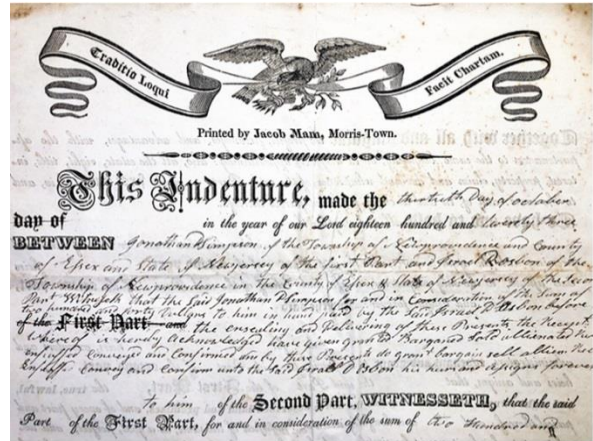 Traditio Loqui
Facit Chartam.
Printed by Jacob Mann, Morris-Town.
This Indenture, made the thirtieth Day of october
day of in the year of our Lord eighteen hundred and twenty three
BETWEEN Jonathan Simpson of the Township of Newprovidence and County
of Essex and State of Newjersey of the first Part and Israel D Osbon of the
Township of Newprovidence in the County of Essex & State of Newjersey of the Second
Part Witnesseth that the Said Jonathan Simpson for and in Consideration of the Sum of
two hundred and forty Dollars to him in hand paid by the Said Israel D Osbon before
of the First Part and the ensealing and Delivering of these Presents the Receipt
whereof is hereby Acknowledged have given granted Bargained Sold alienated
enfeoffed Conveyed and Confirmed and by these Presents do grant bargain sell alien
Enfeoff Convey and Confirm unto the Said Israel D Osbon his heirs and assigns forever
to him of the Second Part, WITNESSETH, that the said
Part of the First Part, for and in consideration of the sum of two hundred and